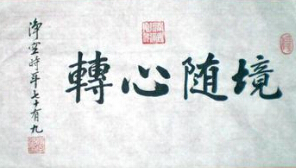 境随心轉
淨空時年七十有九